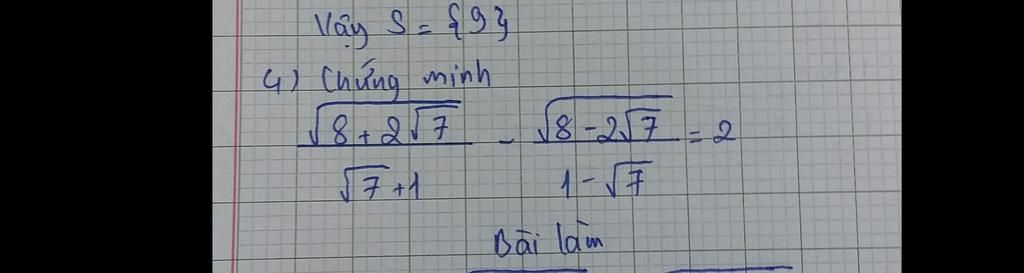 Vậy S = {9}
4) Chứng minh
√(8 + 2√7) / (√7 + 1) - √(8 - 2√7) / (1 - √7) = 2
Bài làm